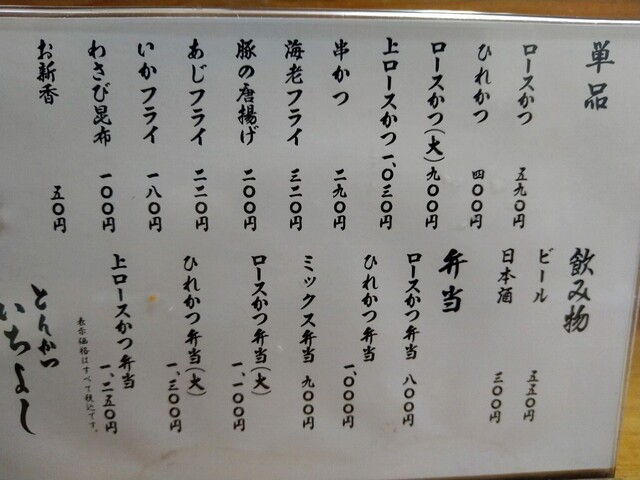 単品
ロースかつ 五九〇円
ひれかつ 四〇〇円
ロースかつ(大) 九〇〇円
上ロースかつ 一、〇三〇円
串かつ 二九〇円
海老フライ 三二〇円
豚の唐揚げ 二〇〇円
あじフライ 二二〇円
いかフライ 一八〇円
わさび昆布 一〇〇円
お新香 五〇円
飲み物
ビール 五五〇円
日本酒 三〇〇円
弁当
ロースかつ弁当 八〇〇円
ひれかつ弁当 一、〇〇〇円
ミックス弁当 九〇〇円
ロースかつ弁当(大) 一、一〇〇円
ひれかつ弁当(大) 一、三〇〇円
上ロースかつ弁当 一、二五〇円
表示価格はすべて税込です。
とんかつ
いちよし